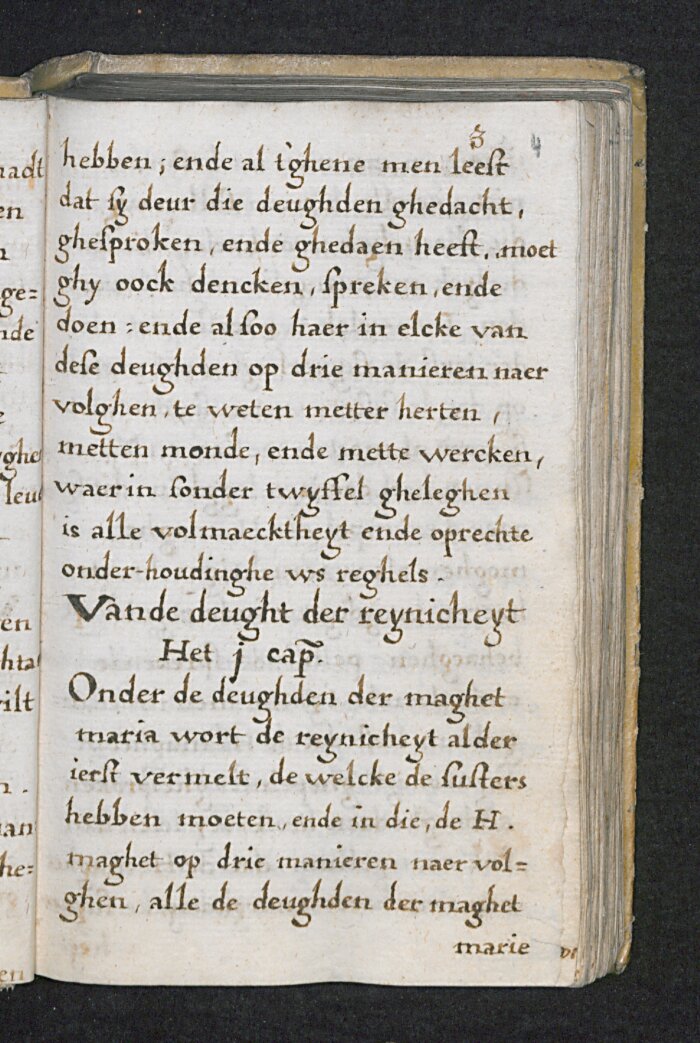 3 4
hebben ; ende al t'ghene men leest
dat sy deur die deughden ghedacht,
ghesproken, ende ghedaen heeft, moet
ghy oock dencken, spreken, ende
doen : ende alsoo haer in elcke van
dese deughden op drie manieren naer
volghen, te weten metter herten,
metten monde, ende mette wercken,
waerin sonder twyffel gheleghen
is alle volmaecktheyt ende oprechte
onder-houdinghe ws reghels.
Vande deught der reynicheyt
Het j cap̃.
Onder de deughden der maghet
maria wort de reynicheyt alder
ierst vermelt, de welcke de susters
hebben moeten, ende in die, de H.
maghet op drie manieren naer vol=
ghen, alle de deughden der maghet
marie